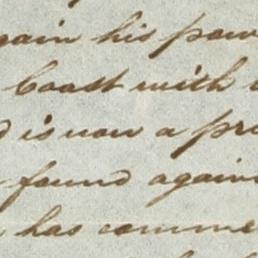 gain his pow
Coast with
is now a pro
found again
has comme